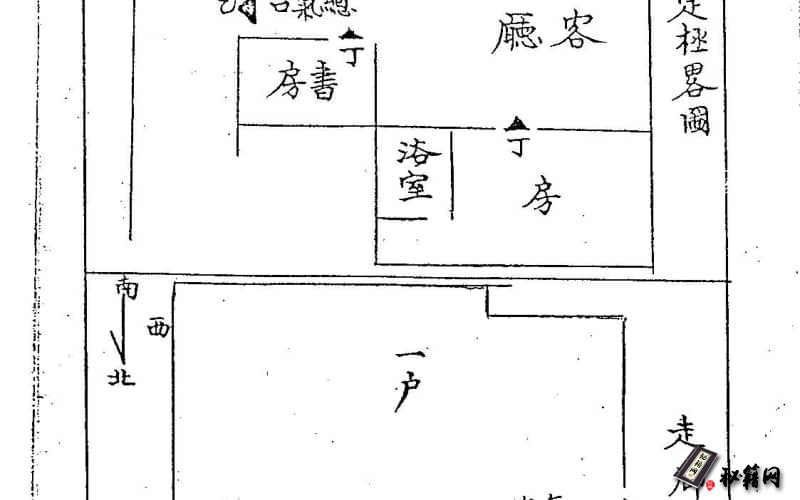 定極畧圖
總氣口
客廳
丁
書房
丁
浴室
房
南
西
北
一户
走
秘籍网